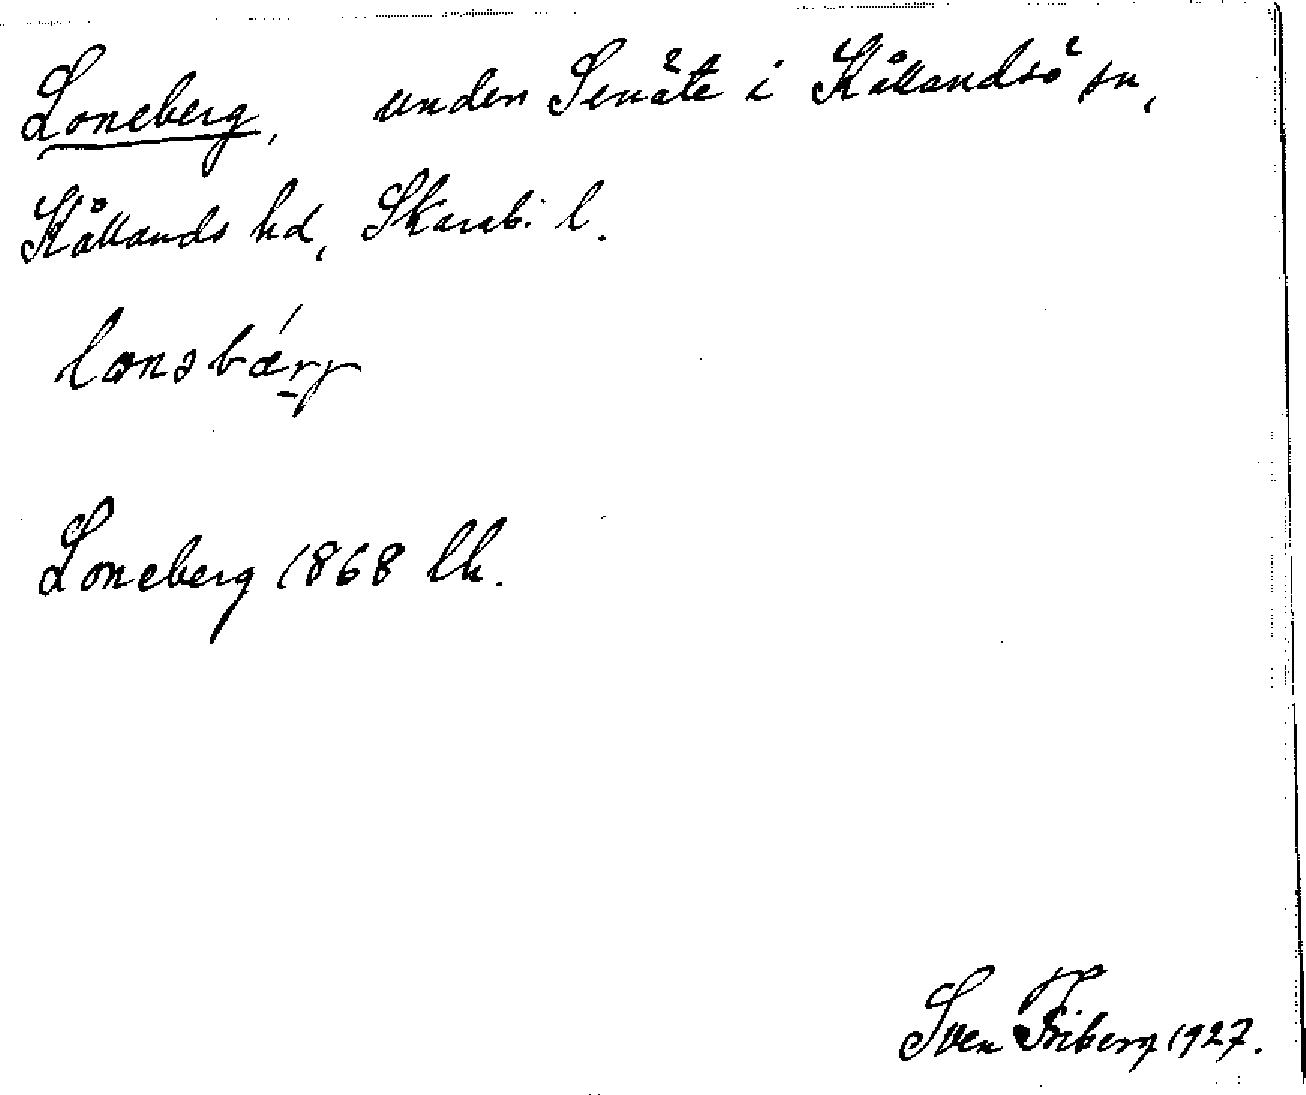 Loneberg, under Senäte i Kållandsö sn,
Kållands hd, Skarab. l.
lonəbærj
Loneberg 1868 lk.
Sven Friberg 1927.